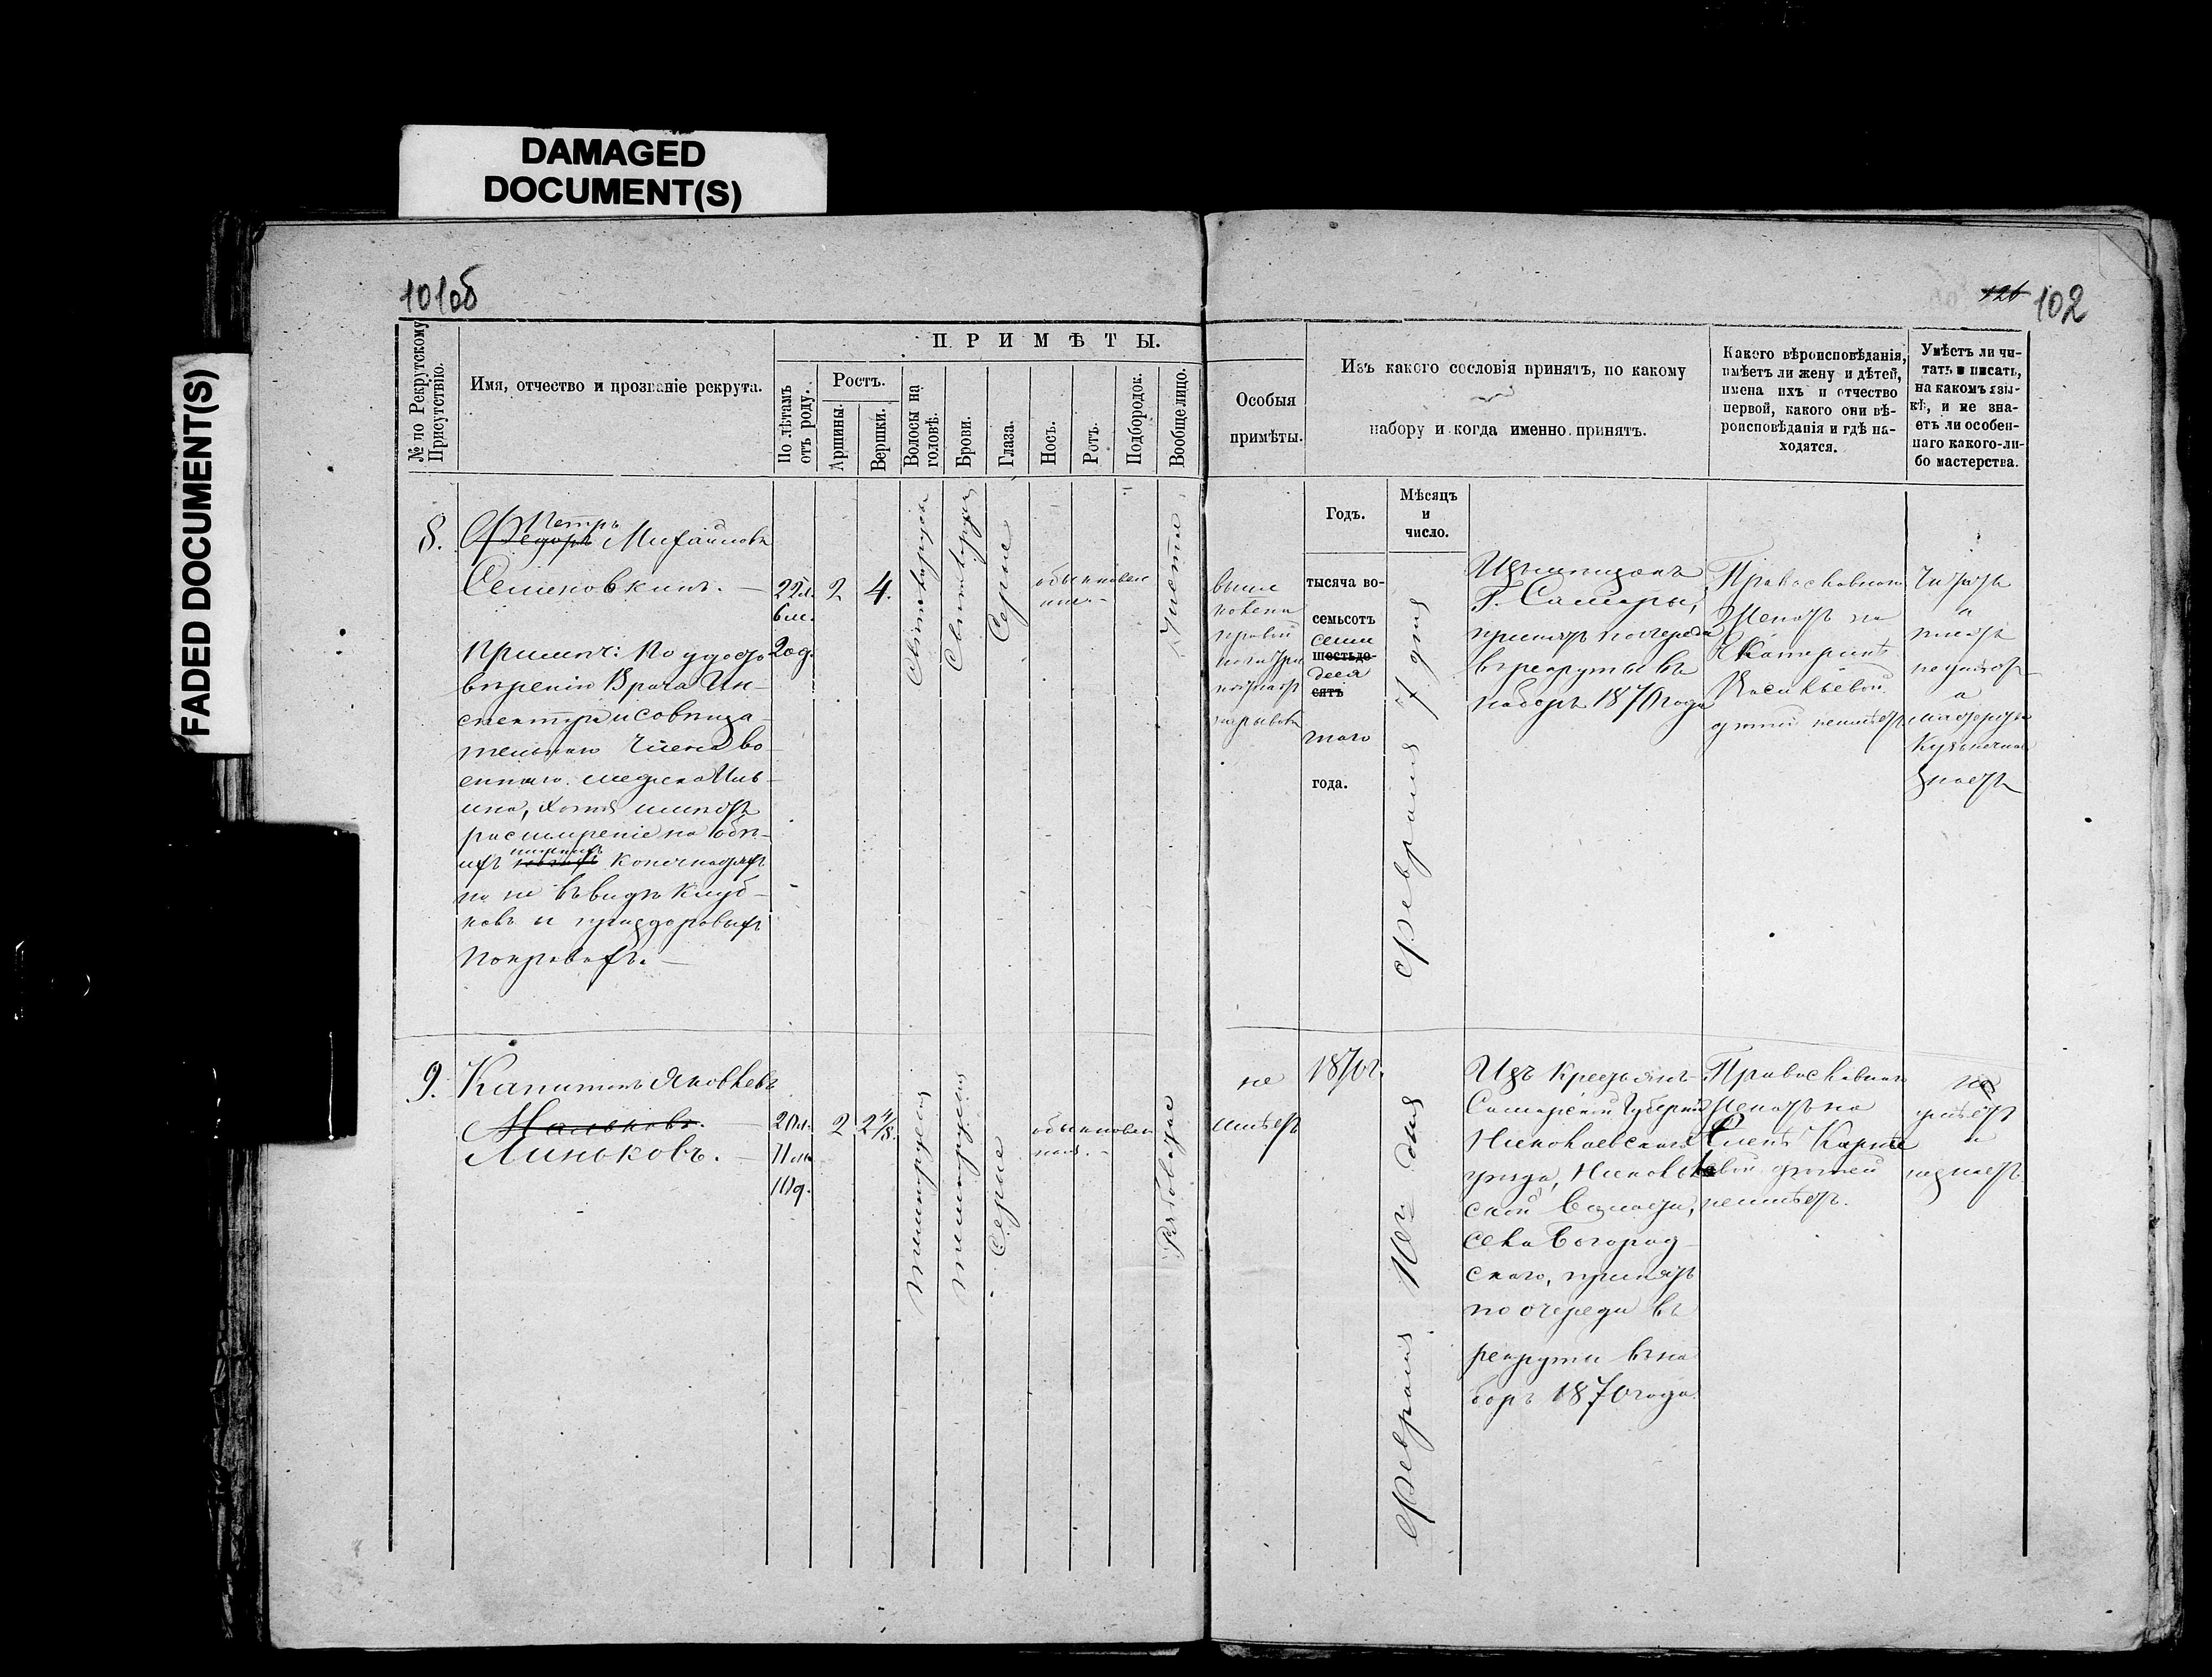 DAMAGED
DOCUMENT(S)
FADED DOCUMENT(S)
101об
126 102
№ по Рекрутскому
Присутствію.
Имя, отчество и прозваніе рекрута.
ПРИМѢТЫ.
По лѣтамъ
отъ роду.
Ростъ.
Аршины.
Вершки.
Волосы на
головѣ.
Брови.
Глаза.
Носъ.
Ротъ.
Подбородок.
Вообще лицо.
Особыя
примѣты.
Изъ какого сословія принятъ, по какому
набору и когда именно принятъ.
Какого вѣроисповѣданія,
имѣетъ ли жену и дѣтей,
имена ихъ и отчество
первой, какого они вѣ-
роисповѣданія и гдѣ на-
ходятся.
Умѣетъ ли чи-
тать и писать,
на какомъ язы-
кѣ, и не зна-
етъ ли особен-
наго какого-ли-
бо мастерства.
Годъ.
Мѣсяцъ
и
число.
8.
Петръ
Федоръ Михайловъ
Семеновкинъ. —
Примѣч: По удосто
вѣренію Врача Ин-
спектора и совѣща-
тельнаго Члена во-
еннаго медика Иль-
ина, хотя имѣетъ
расширеніе на обѣ-
ихъ нижнихъ конечностяхъ
но не въ видѣ клуб-
ковъ и при здоровыхъ
покровахъ. —
22л.
6м.
20д.
2
4.
Свѣтлорусые
Свѣтлорусыя
Серые
обыкновен
ные
Чистое
выше
колена
правой
ноги три
пятна отъ
нарывовъ
тысяча во-
семьсотъ
семи
шестьде-
десят
сятъ
таго
года.
Февраля 7 дня
Изъ мещанъ
Г. Самары,
принятъ по очереди
въ рекруты въ
наборъ 1870 года
Православнаго
Женатъ на
Катеринѣ
Васильевой
детей неимѣетъ
Читать
и
писать
неумѣетъ
а
мастерство
Кузнечное
знаетъ
9.
Капитонъ Яковлевъ
Мальковъ.
Линьковъ. —
20л.
11м.
10д.
2
2 4/8.
Темнорусые
Темнорусыя
Серые
обыкновен
ные. —
Рябоватое
не
имѣетъ
1870г.
Февраля 10го дня
Изъ крестьянъ
Самарской Губерніи
Николаевскаго
уезда, Николь
ской Волости,
села Богород-
скаго, принятъ
по очереди въ
рекруты въ на
боръ 1870 года
Православнаго
Женатъ на
Еленѣ Карпѣе
вой детей
неимѣетъ.
не
умѣетъ
и
незнаетъ